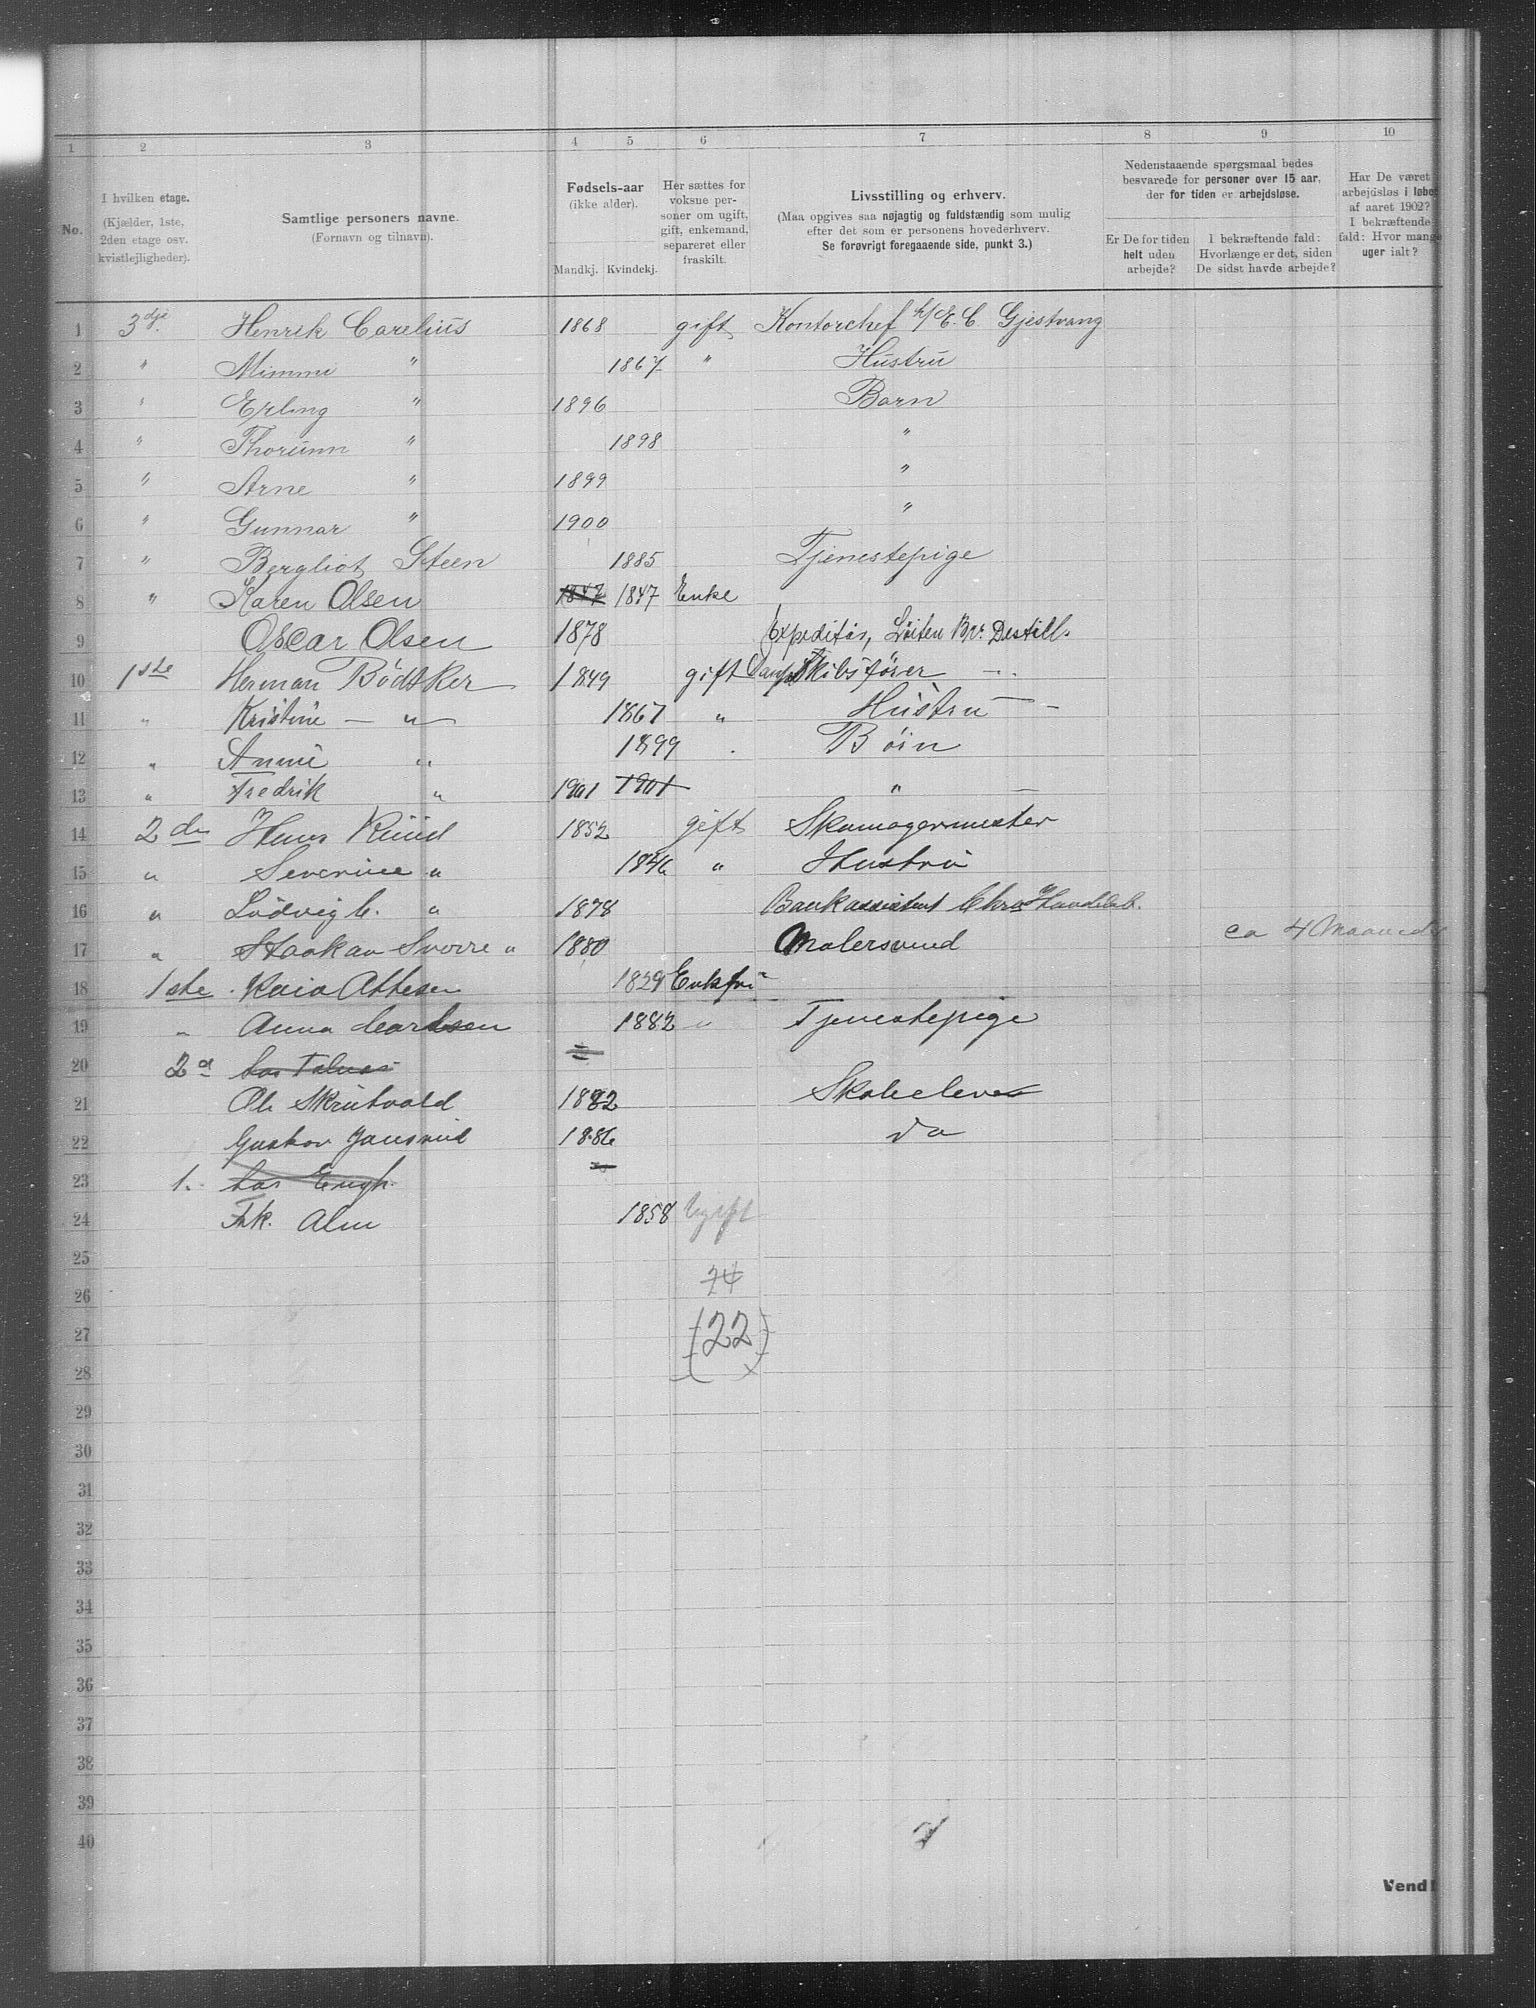 1 2 3 4 5 6 7 8 9 10
No.
I hvilken etage.
(Kjælder, 1ste,
2den etage osv.
kvistlejligheder).
Samtlige personers navne.
(Fornavn og tilnavn).
Fødsels-aar
(ikke alder).
Mandkj. Kvindekj.
Her sættes for
voksne per-
soner om ugift,
gift, enkemand,
separeret eller
fraskilt.
Livsstilling og erhverv.
(Maa opgives saa nøjagtig og fuldstændig som mulig
efter det som er personens hovederhverv.
Se forøvrigt foregaaende side, punkt 3.)
Nedenstaaende spørgsmaal bedes
besvarede for personer over 15 aar,
der for tiden er arbejdsløse.
Er De for tiden
helt uden
arbejde?
I bekræftende fald:
Hvorlænge er det, siden
De sidst havde arbejde?
Har De været
arbejdsløs i løbet
af aaret 1902?
I bekræftende
fald: Hvor mange
uger ialt?
1 3dje Henrik Carelius 1868 gift Kontorchef h/E. C. Gjestvang
2 " Mimmi " 1867 " Hustru
3 " Erling " 1896 Barn
4 " Thorunn " 1898 "
5 " Arne " 1899 "
6 " Gunnar " 1900 "
7 " Bergliot Steen 1885 Tjenestepige
8 " Karen Olsen 1847 1847 Enke
9 Oscar Olsen 1878 Expeditør, Løiten Br. Destill.
10 1ste Herman Bødtker 1849 gift Dampskibsfører
11 " Kristine — " — 1867 " Hustru
12 " Annie " 1899 Børn
13 " Fredrik " 1901 1901 "
14 2den Hans Ruud 1852 gift Skomagermester
15 " Severine " 1846 " Hustru
16 " Ludvig C. " 1878 Bankassistent Chra Handelsb.
17 " Haakon Sverre " 1880 Malersvend ca 4 Maaneder
18 1ste Kaia Attesen 1829 Enkfru
19 " Anna Carlsen 1882 " Tjenestepige
20 2d
21 Ole Skrutvold 1882 Skoleelev
22 Gustav Jansrud 1886 do
23 1. hos Engh.
24 Frk. Alm 1858 Ugift
25
26 24
27 (22)
28
29
30
31
32
33
34
35
36
37
38
39
40
Vend!